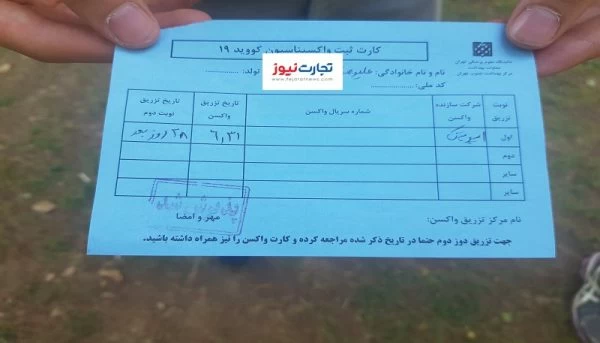 کارت ثبت واکسیناسیون کووید ۱۹
دانشگاه علوم پزشکی تهران
معاونت بهداشت
مرکز بهداشت جنوب تهران
نام و نام خانوادگی: تولد:
کد ملی:
تجارت‌نیوز
www.tejaratnews.com
نوبت تزریق
شرکت سازنده واکسن
شماره سریال واکسن
تاریخ تزریق واکسن
تاریخ تزریق نوبت دوم
اول ۶,۳۱ ۲۸ روز بعد
دوم
سایر
سایر
نام مرکز تزریق واکسن:
مهر و امضا
جهت تزریق دوز دوم حتما در تاریخ ذکر شده مراجعه کرده و کارت واکسن را نیز همراه داشته باشید.